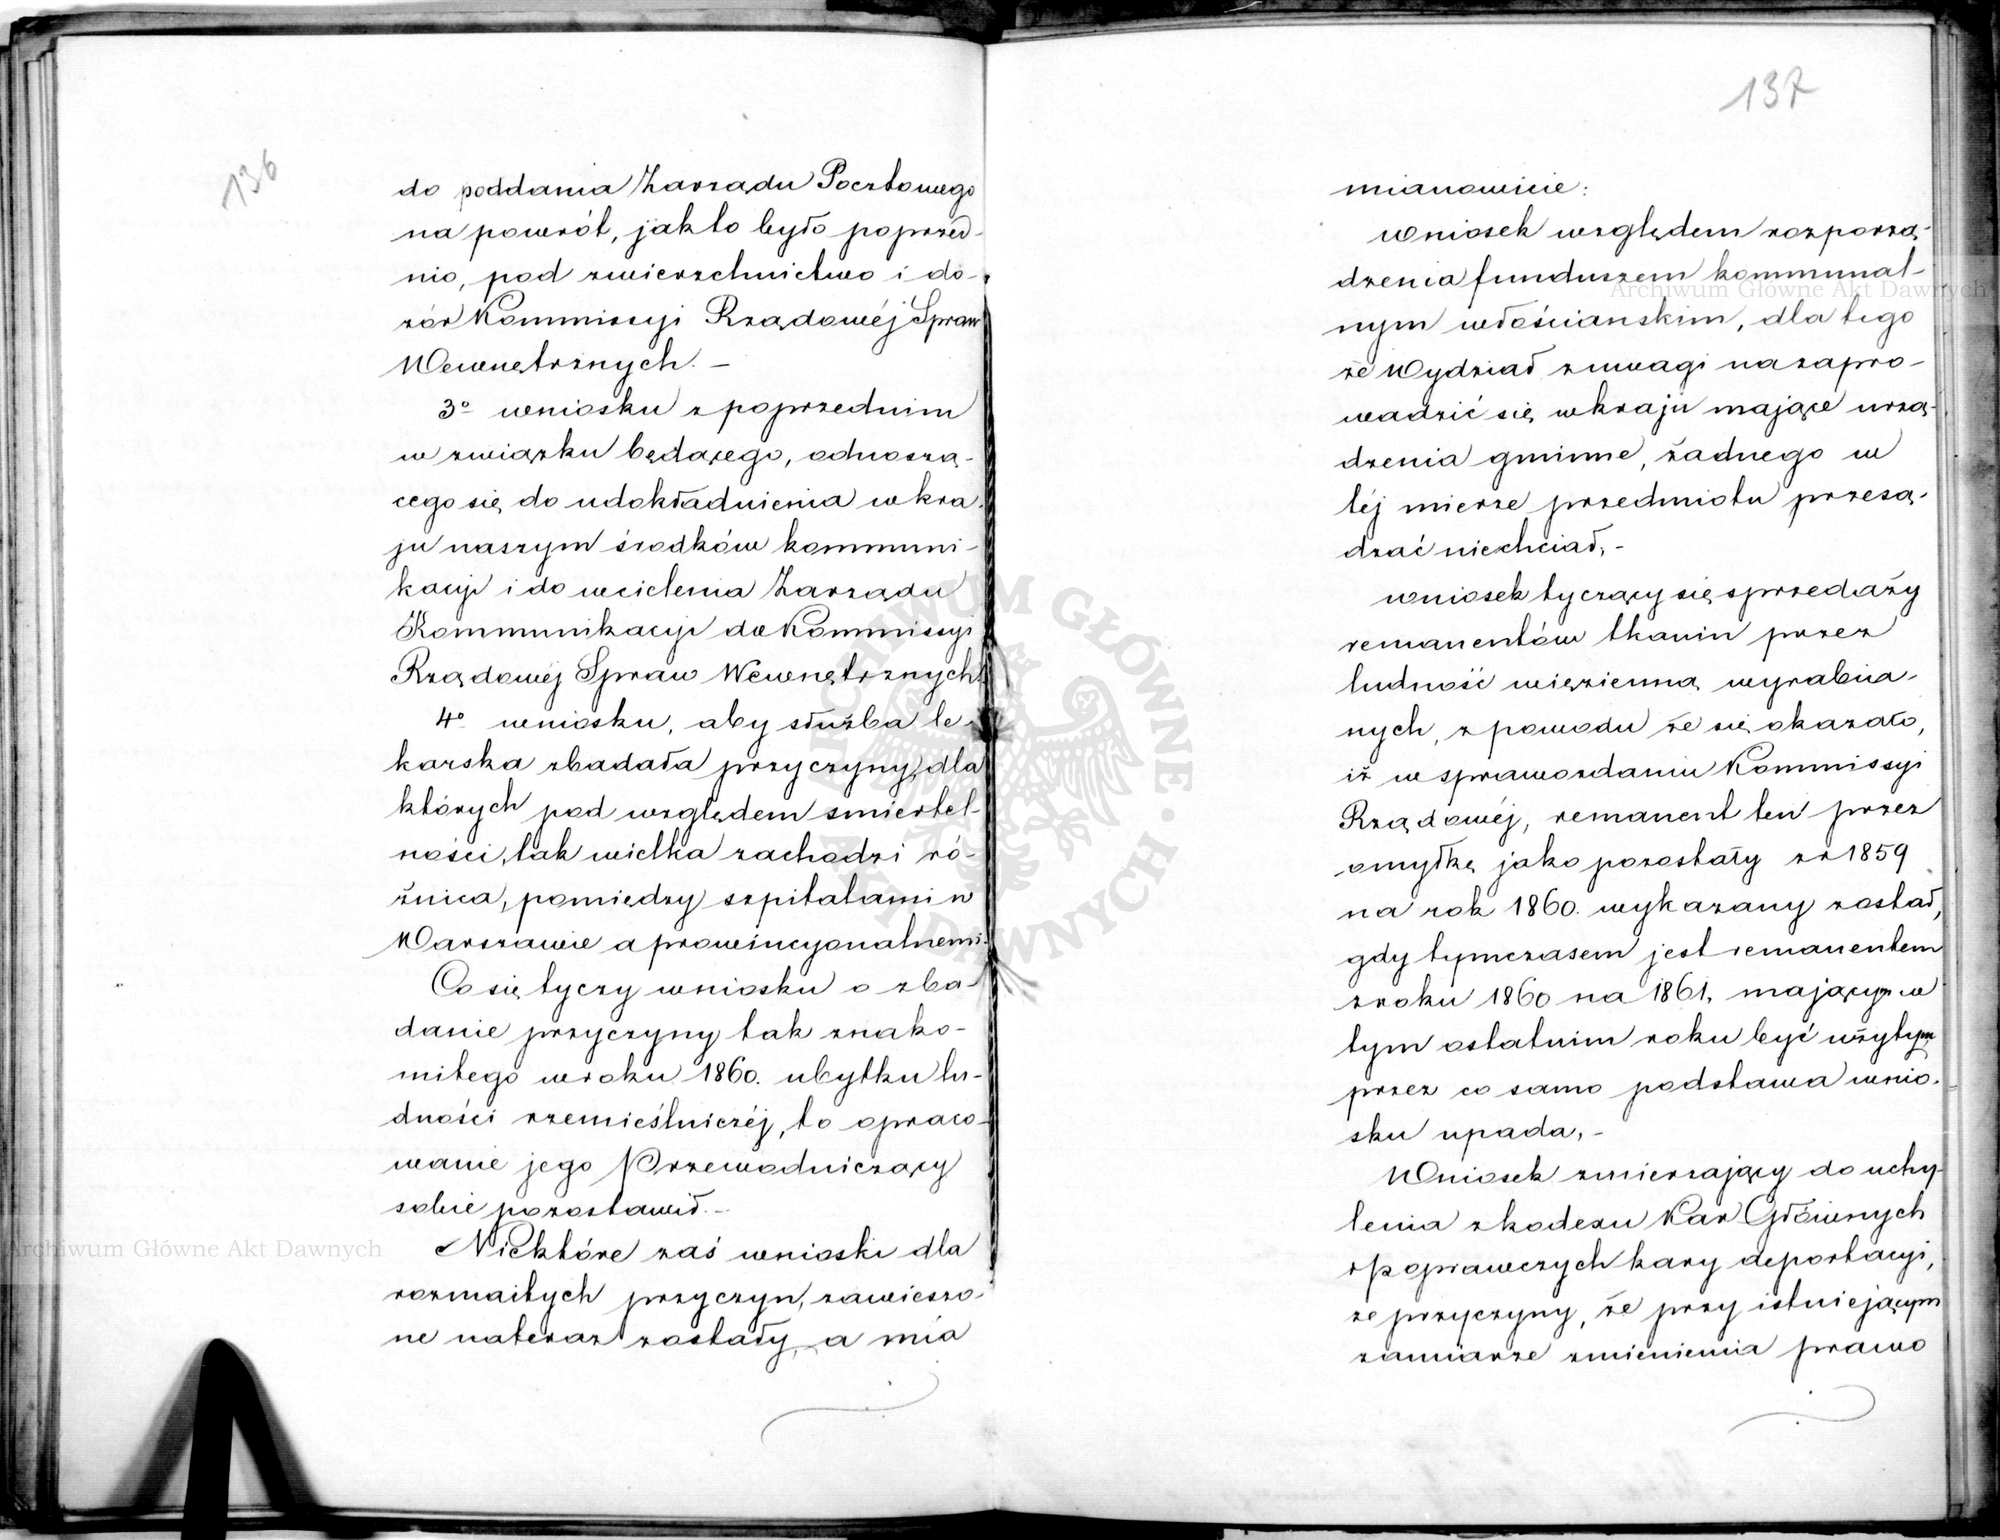 136
do poddania Zarządu Pocztowego
na powrót, jak to było poprzed-
nio, pod zwierzchnictwo i do-
zór Kommissyi Rządowéj Spraw
Wewnętrznych. -
3o wniosku z poprzednim
w związku będącego, odnoszą-
cego się do udokładnienia w kra-
ju naszym środków kommuni-
kacyi i do wcielenia Zarządu
Kommunikacyi do Kommissyi
Rządowéj Spraw Wewnętrznych
4o wniosku, aby służba le-
karska zbadała przyczyny, dla
których pod względem śmiertel-
ności, tak wielka zachodzi ró-
żnica, pomiędzy szpitalami w
Warszawie a prowincyonalnemi.
Co się tyczy wniosku o zba-
danie przyczyny tak znako-
mitego w roku 1860. ubytku lu-
dności rzemieślniczéj, to opraco-
wanie jego Przewodniczący
sobie pozostawił. -
Niektóre zaś wnioski dla
rozmaitych przyczyn, zawieszo-
ne nateraz zostały, a mia
137
mianowicie:
wniosek względem rozporzą-
dzenia funduszem kommunal-
nym włościanskim, dla tego
że Wydział z uwagi na zapro-
wadzić się w kraju mające urzą-
dzenia gminne, żadnego w
téj mierze przedmiotu przesą-
dzać niechciał, -
wniosek tyczący się sprzedaży
remanentów tkanin przez
ludność więzienną wyrabia-
nych, z powodu że się okazało,
iż w sprawozdaniu Kommissyi
Rządowéj, remanent ten przez
omyłkę jako pozostały zr 1859
na rok 1860. wykazany został,
gdy tymczasem jest remanentem
z roku 1860 na 1861, mającym w
tym ostatnim roku być użytym
przez co samo podstawa wnio-
sku upada, -
Wniosek zmierzający do uchy-
lenia z kodexu Kar Głównych
i poprawczych kary deportacyi,
ze przyczyny, że przy istniejącym
zamiarze zmienienia prawo
Archiwum Główne Akt Dawnych
Archiwum Główne Akt Dawnych
ARCHIWUM GŁÓWNE AKT DAWNYCH